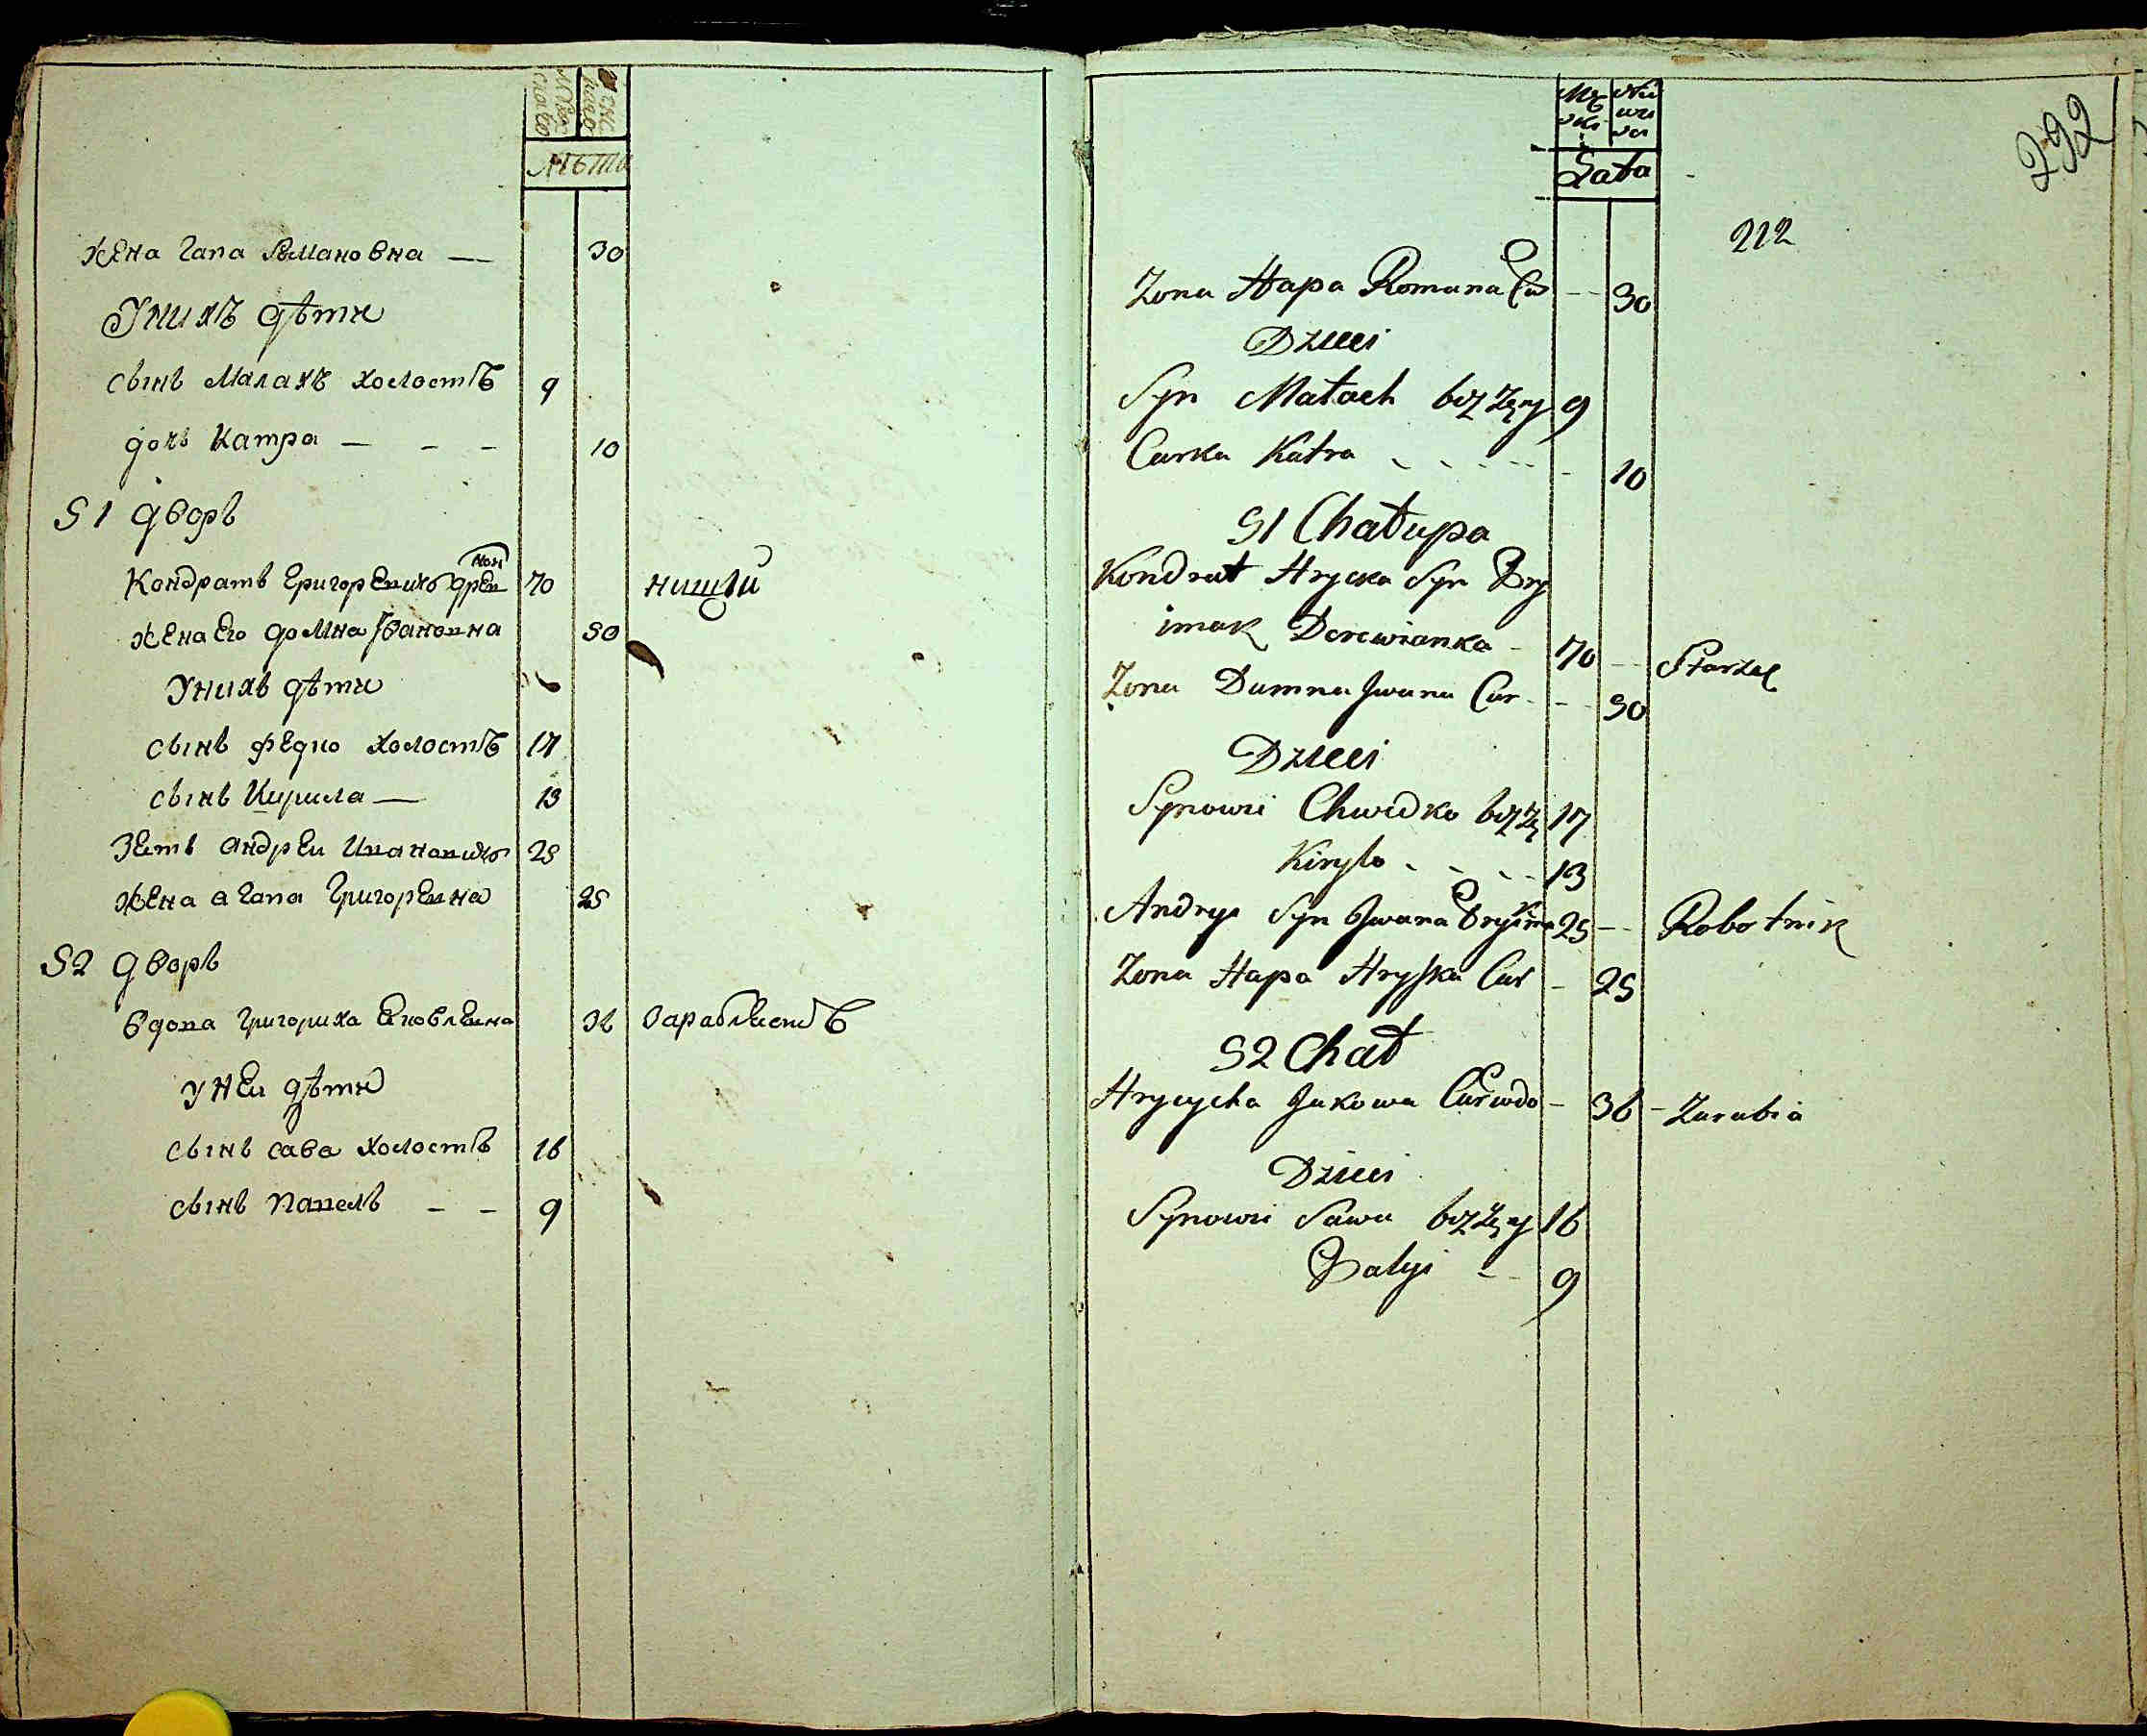 Мужеско
Женско
лѣти
жена Гапа Романовна — 30
У нихъ дѣти
сынъ Малахъ холостъ 9
дочь Катра — - - 10
51 дворъ
Кондратъ Григоревичъ 70 нищій
жена его Домна Ивановна 50
У нихъ дѣти
сынъ Федко холостъ 17
сынъ Кирила — 13
Зеть Андреи Ивановичъ 25
жена Агапа Григоревна 25
52 дворъ
вдова Григориха Яковлевна 36 Зарабляетъ
у неи дѣти
сынъ Сава холостъ 16
сынъ Павелъ - - 9
292
Lata
212
Zona Hapa Romana Cur -- 30
Dzieci
Syn Małach bez Zęny 9
Curka Katra - - - 10
51 Chałupa
Kondrat Hrycka Syn Pry
imak Derewianka - 70 -- Starzec
Zona Dumna Jwana Cur - - 50
Dzieci
Synowie Chwedko bez Zę 17
Kiryło - - - 13
Andryi Syn Jwana Pryimak 25 -- Robotnik
Zona Hapa Hryska Cur - 25
52 Chał
Hrycycha Jakowa Cur wdo - 36 - Zarabia
Dzieci
Synowie Sawa bez Zęny 16
9